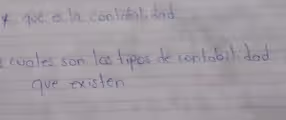 * que es la contabilidad
cuales son los tipos de contabilidad
que existen